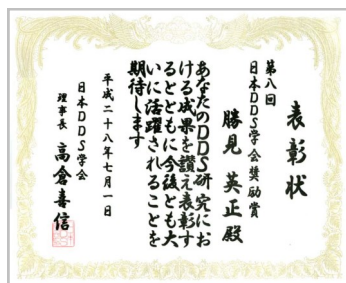 表彰状
第八回
日本DDS学会奨励賞
勝見 英正 殿
あなたのDDS研究にお
ける成果を讃え表彰す
るとともに今後とも大
いに活躍されることを
期待します
平成二十八年七月一日
日本DDS学会
理事長 高倉喜信